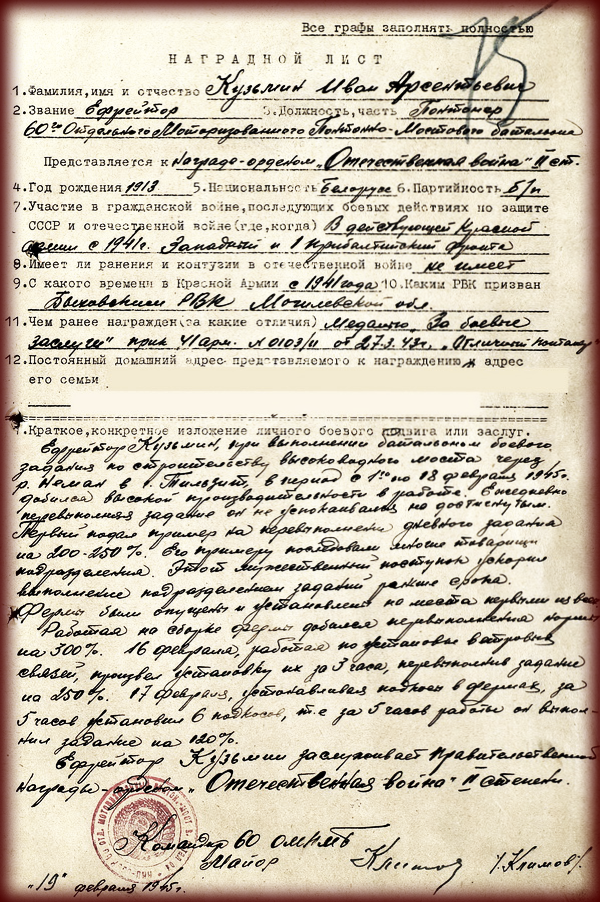 Все графы заполнять полностью
75
НАГРАДНОЙ ЛИСТ
1.Фамилия,имя и отчество Кузьмин Иван Арсентьевич
2.Звание Ефрейтор 3.Должность,часть Понтонер
60го Отдельного Моторизованного Понтонно-Мостового батальона
Представляется к награде-орденом „Отечественная война" II ст.
4.Год рождения 1913 5.Национальность Белорус 6.Партийность Б/п
7.Участие в гражданской войне,последующих боевых действиях по защите
СССР и отечественной войне(где,когда) В действующей Красной
армии с 1941г. Западный и 1 Прибалтийский фронта
8.Имеет ли ранения и контузии в отечественной войне не имеет
9.С какого времени в Красной Армии с 1941 года 10.Каким РВК призван
Быховским РВК Могилевской обл.
11.Чем ранее награжден(за какие отличия) Медалью „За боевые
заслуги" прик 41 арм. N 0103/н от 27.3.43г., „Отличный понтонер"
12.Постоянный домашний адрес представляемого к награждению и адрес
его семьи
1.Краткое,конкретное изложение личного боевого подвига или заслуг.
Ефрейтор Кузьмин, при выполнении батальоном боевого
задания по строительству высоководного моста через
р. Неман в г. Тильзит, в период с 1го по 18 февраля 1945г.
добился высокой производительности в работе. Ежедневно
перевыполняя задание он не успокаивался на достигнутом.
Первый подал пример на перевыполнении дневного задания
на 200-250%. Его примеру последовали многие товарищи
подразделения. Этот мужественный поступок ускорил
выполнение подразделением заданий раньше срока.
Фермы были опущены и установлены на места первыми из всех
Работая на сборке ферм добился перевыполнения нормы
на 300%. 16 февраля, работая по установке ветровых
связей, произвел установку их за 3 часа, перевыполнив задание
на 250%. 17 февраля, устанавливая подкосы в фермах, за
5 часов установил 6 подкосов, т.е за 5 часов работы он выпол-
нил задание на 120%.
Ефрейтор Кузьмин заслуживает Правительственной
награды-орденом „Отечественная война" II степени.
Командир 60 ОМПМБ
Майор /Климов/.
"19" февраля 1945г.